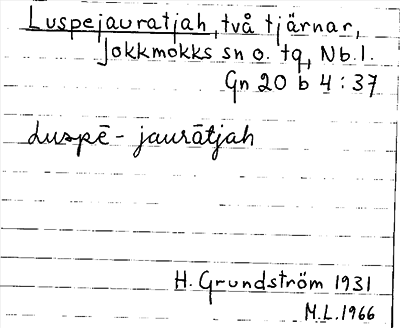 Luspejauratjah, två tjärnar,
Jokkmokks sn o. tg, Nb.l.
Gn 20 b 4:37
luspē-jaurātjah
H. Grundström 1931
M.L.1966